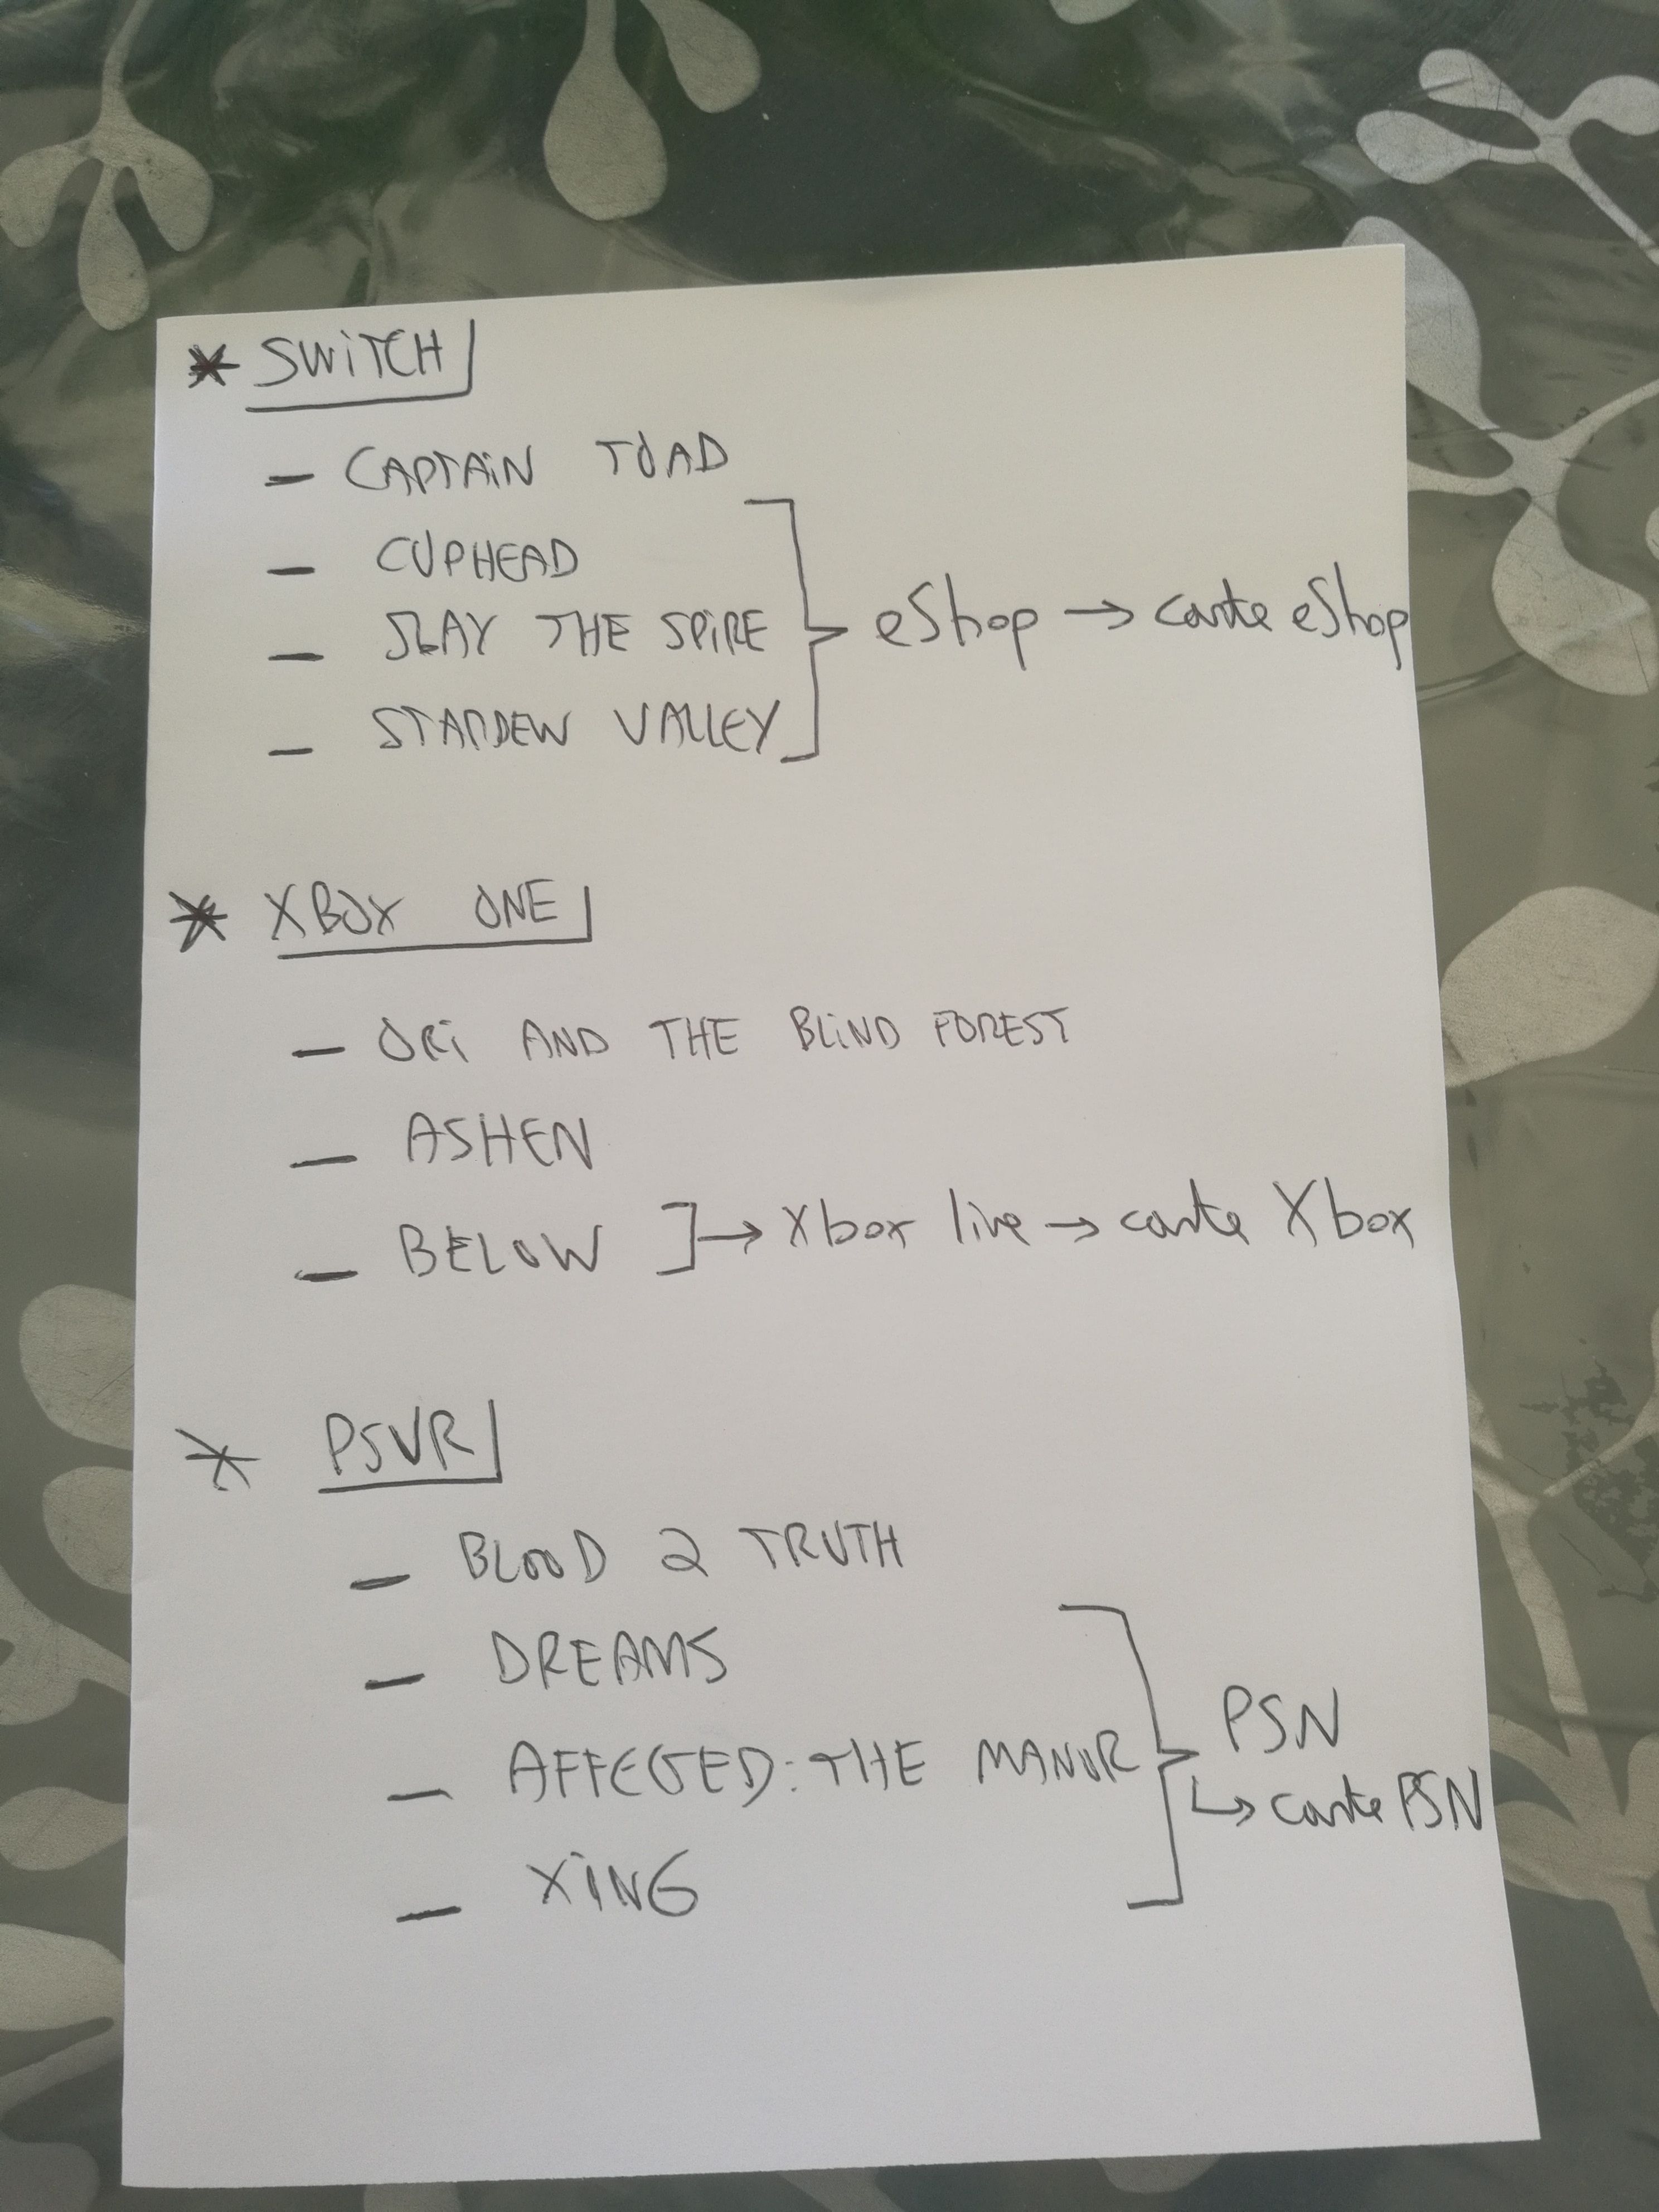 * SWiTCH
- CAPTAiN TOAD
- CUPHEAD
- SLAY THE SPiRE eShop → carte eShop
- STARDEW VALLEY
* XBOX ONE
- ORi AND THE BLiND FOREST
- ASHEN
- BELOW → Xbox live → carte Xbox
* PSVR
- BLOOD 2 TRUTH
- DREAMS
- AFFECTED: THE MANOR PSN
↳ carte PSN
- XiNG